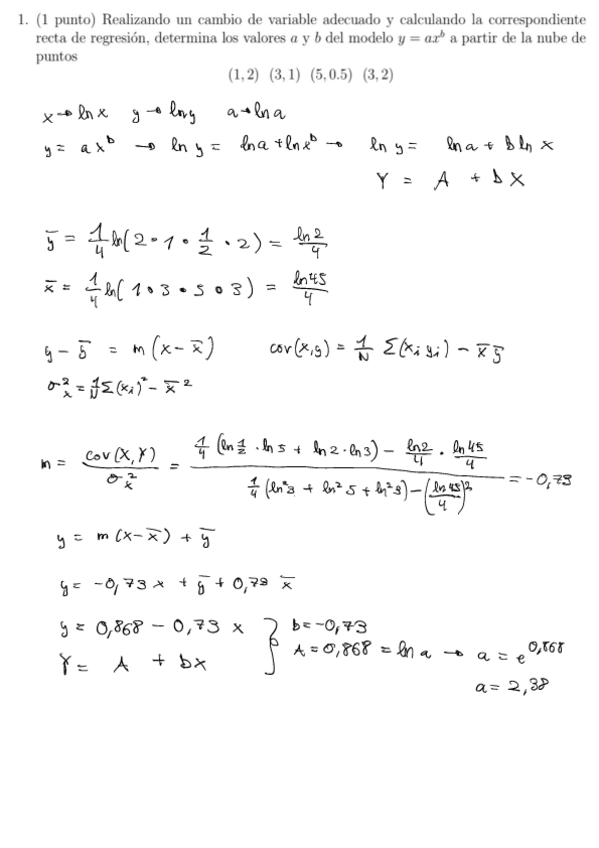 1. (1 punto) Realizando un cambio de variable adecuado y calculando la correspondiente
recta de regresión, determina los valores a y b del modelo y = ax^b a partir de la nube de
puntos
(1, 2) (3, 1) (5, 0.5) (3, 2)
x → ln x y → ln y a → ln a
y = a x^b → ln y = ln a + ln x^b → ln y = ln a + b ln x
Y = A + b X
ȳ = 1/4 ln(2 · 1 · 1/2 · 2) = ln 2/4
x̄ = 1/4 ln(1 · 3 · 5 · 3) = ln 45/4
y - ȳ = m (x - x̄) cov(x,y) = 1/N Σ(xi yi) - x̄ ȳ
σx² = 1/N Σ(xi)² - x̄²
m = cov(X,Y)/σx² = (1/4 (ln 1/2 · ln 5 + ln 2 · ln 3) - ln 2/4 · ln 45/4)/(1/4 (ln² 3 + ln² 5 + ln² 3) - (ln 45/4)²) = -0,73
y = m (x - x̄) + ȳ
y = -0,73 x + ȳ + 0,73 x̄
y = 0,868 - 0,73 x } b = -0,73
Y = A + bx A = 0,868 = ln a → a = e^0,868
a = 2,38